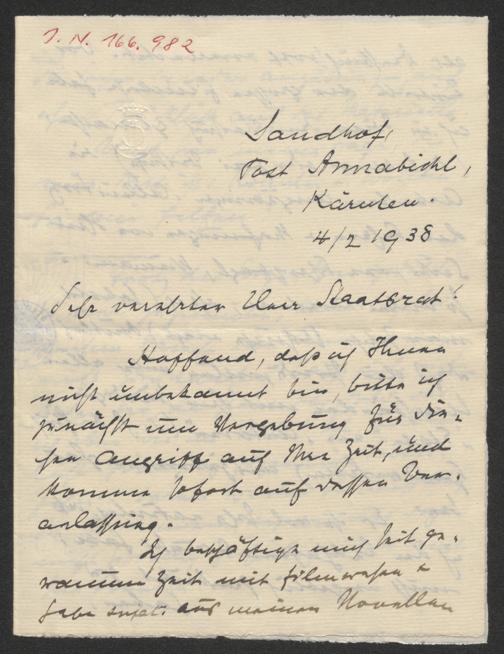 J. N. 166.982
Sandhof,
Post Annabichl,
Kärnten.
4/2 1938
Sehr verehrter Herr Staatsrat!
Hoffend, daß ich Ihnen
nicht unbekannt bin, bitte ich
zunächst um Vergebung für die-
sen Angriff auf Ihre Zeit, und
komme sofort auf dessen Ver-
anlassung.
Ich beschäftige mich seit ge-
raumer Zeit mit Filmwesen
habe aus meinen Novellen